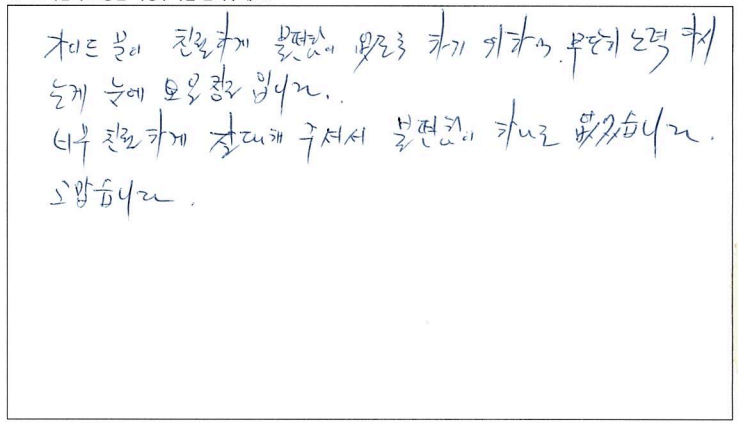 가이드 분이 친절하게 불편함이 없도록 하기 위하여 무단히 노력 하시
는게 눈에 보일 정도 입니다..
너무 친절하게 잘대해 주셔서 불편함이 하나도 없었습니다.
고맙습니다.